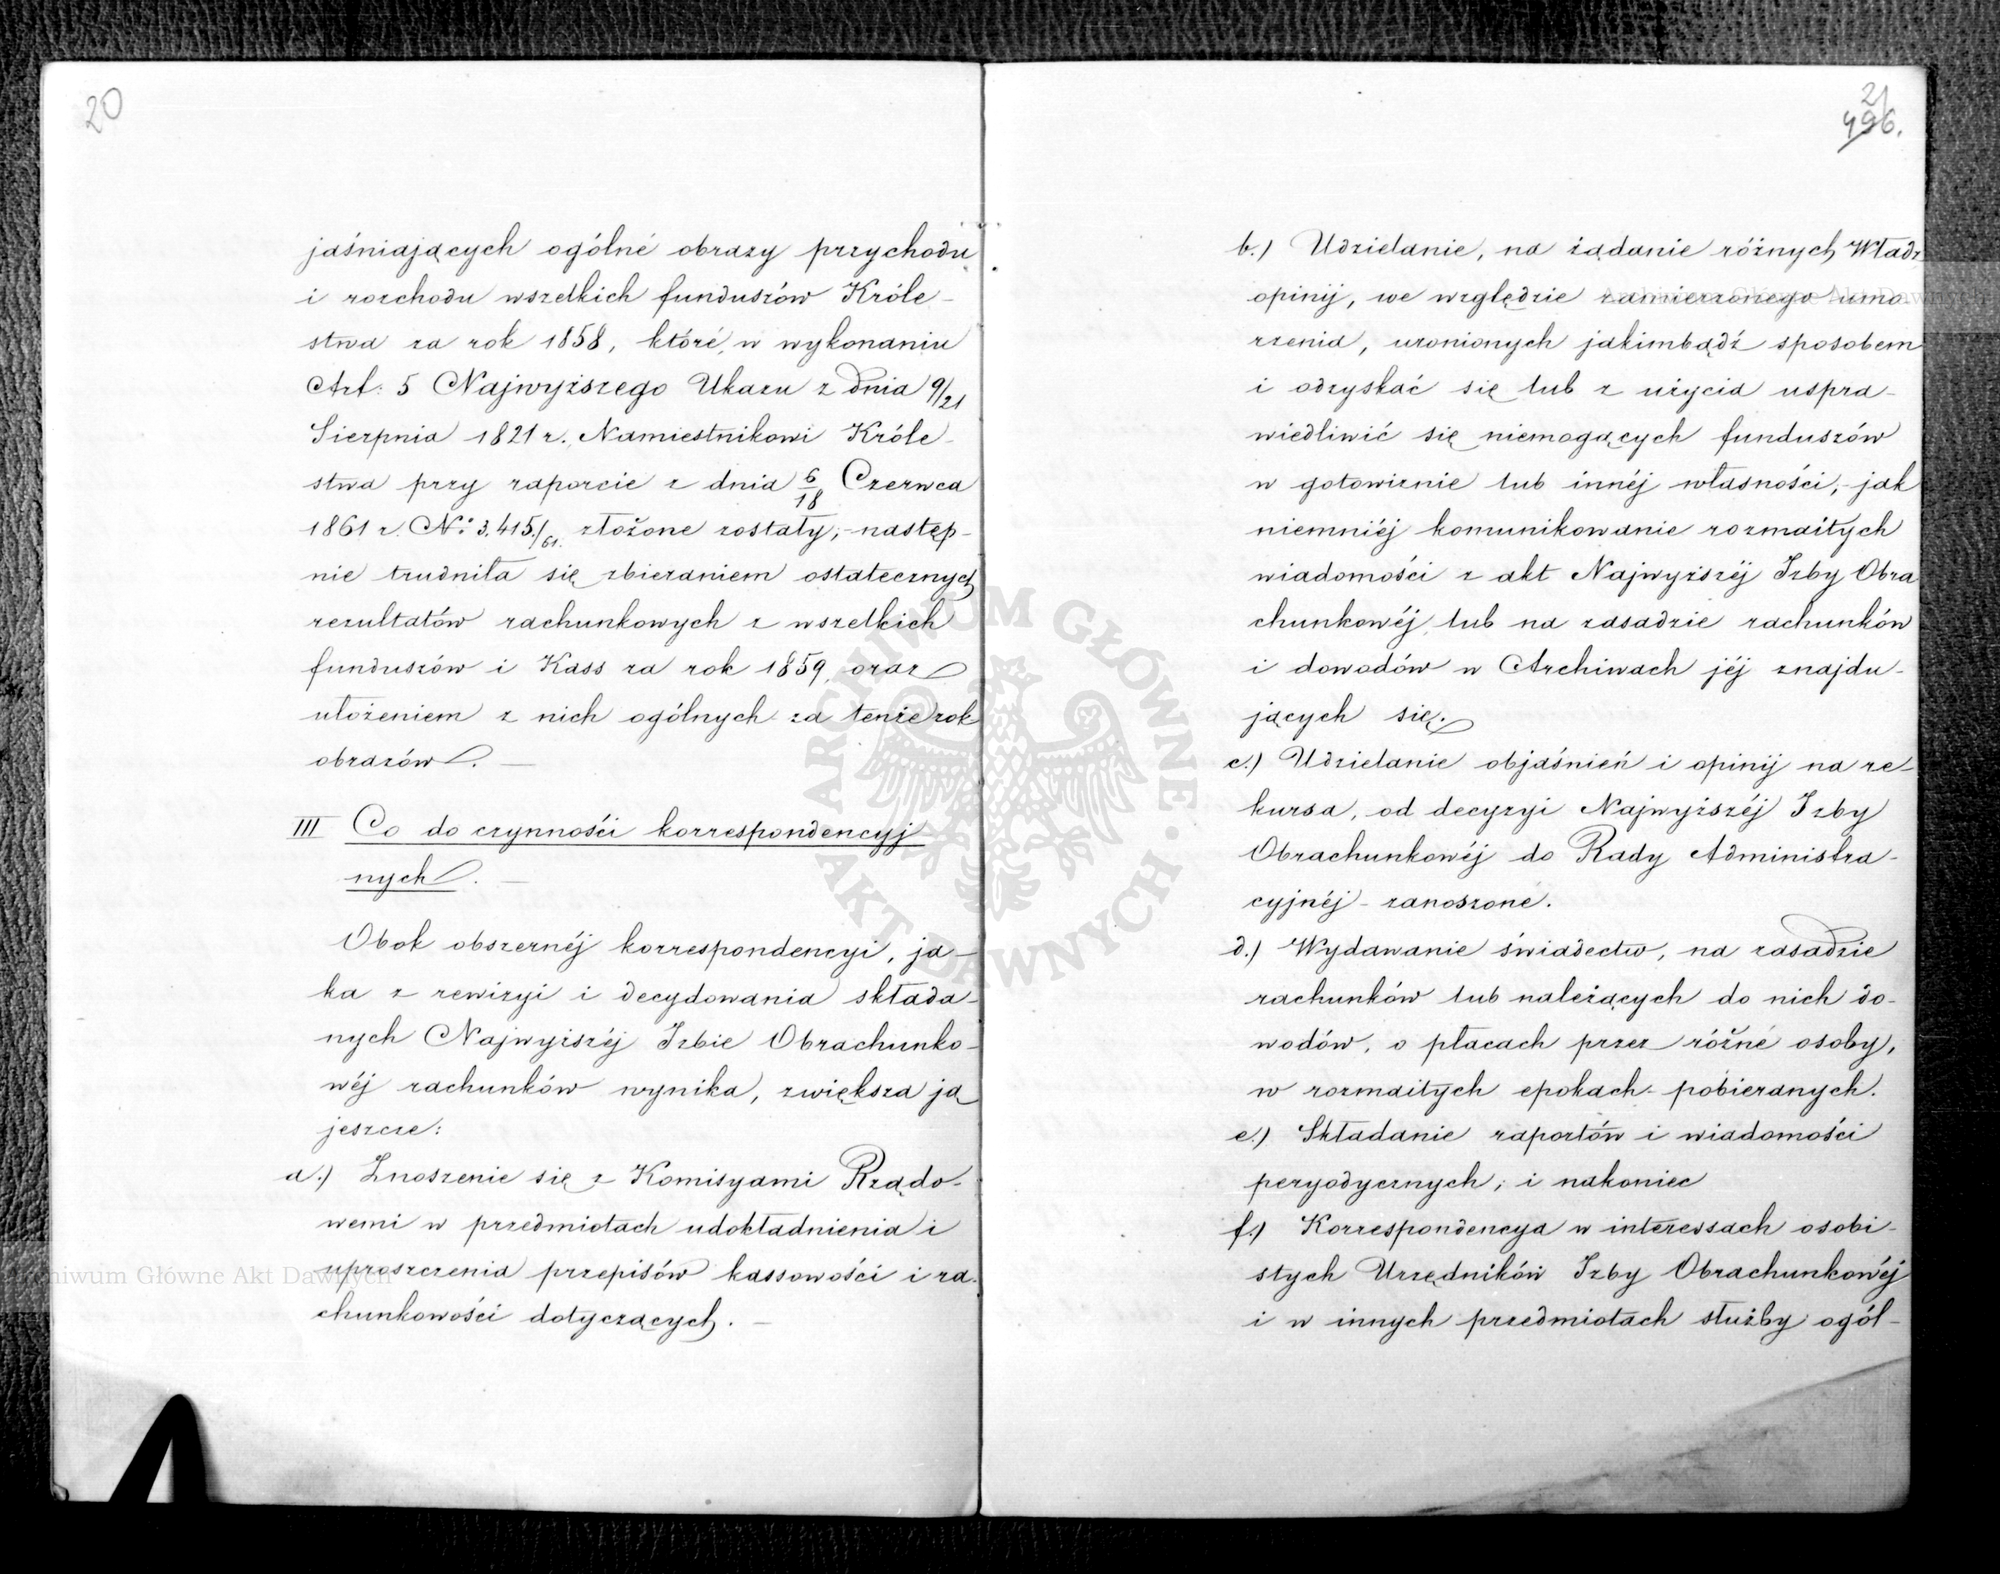 20
jaśniających ogólné obrazy przychodu
i rozchodu wszelkich funduszów Króle-
stwa za rok 1858, któré, w wykonaniu
Art: 5 Najwyższego Ukazu z dnia 9/21
Sierpnia 1821 r. Namiestnikowi Króle-
stwa przy raporcie z dnia 6/18 Czerwca
1861 r. No: 3,415/61. złożone zostały; - następ-
nie trudniła się zbieraniem ostatecznych
rezultatów rachunkowych z wszelkich
funduszów i Kass za rok 1859, oraz
ułożeniem z nich ogólnych za tenże rok
obrazów. —
III Co do czynności korrespondencyj
nych. —
Obok obszernéj korrespondencyi, ja-
ka z rewizyi i decydowania składa-
nych Najwyższéj Izbie Obrachunko-
wéj rachunków wynika, zwiększa ją
jeszcze:
a.) Znoszenie się z Komisyami Rządo-
wemi w przedmiotach udokładnienia i
uproszczenia przepisów kassowości i ra-
chunkowości dotyczących. —
21
496.
b.) Udzielanie, na żądanie różnych Władz
opinij, we względzie zamierzonego umo
rzenia, uronionych jakimbądź sposobem
i odzyskać się lub z użycia uspra-
wiedliwić się niemogących funduszów
w gotowiznie lub innéj własności, - jak
niemniéj komunikowanie rozmaitych
wiadomości z akt Najwyższéj Izby Obra
chunkowéj lub na zasadzie rachunków
i dowodów w Archiwach jéj znajdu-
jących się.
c.) Udzielanie objaśnień i opinij na re-
kursa, od decyzyi Najwyższéj Izby
Obrachunkowéj do Rady Administra-
cyjnéj - zanoszoné.
d.) Wydawanie świadectw, na zasadzie
rachunków lub należących do nich do-
wodów, o płacach przez różné osoby,
w rozmaitych epokach pobieranych.
e.) Składanie raportów i wiadomości
peryodycznych; i nakoniec
f.) Korrespondencya w interessach osobi-
stych Urzędników Izby Obrachunkowéj
i w innych przedmiotach służby ogól-
ARCHIWUM GŁÓWNE AKT DAWNYCH
Archiwum Główne Akt Dawnych
Archiwum Główne Akt Dawnych